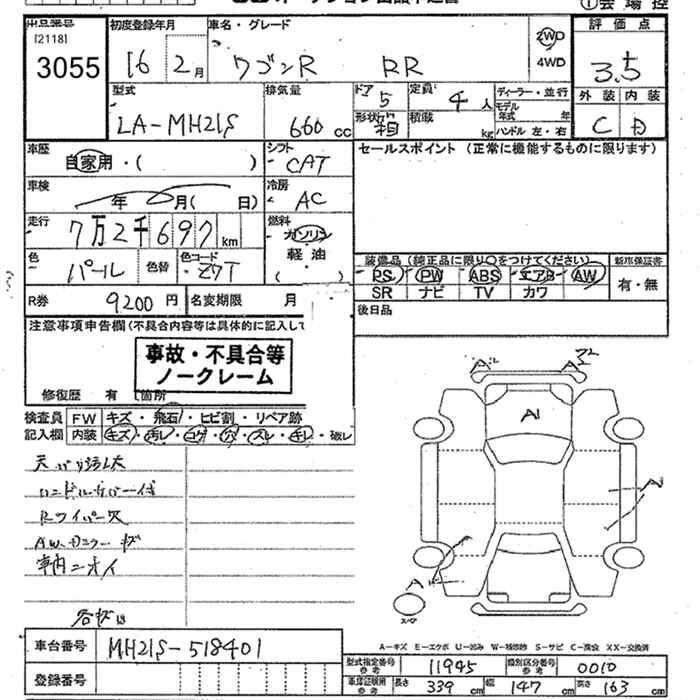 ①会場控
出品番号 初度登録年月 車名・グレード 評価点
[2118]
3055 16 2月 ワゴンR RR 2WD 3.5
4WD
型式 排気量 ドア 5 定員 4人 ディーラー・並行 外装 内装
モデル年式 年
LA-MH21S 660cc 形状 箱 積載 kg ハンドル 左・右 C D
車歴 シフト セールスポイント (正常に機能するものに限ります)
自家用・( ) CAT
車検 冷房
年 月( 日) AC
走行 燃料
7万2千697km ガソリン
軽油
色 色替 色コード ( )
パール Z7T
装備品 (純正品に限り○をつけてください) 新車保証書
PS PW ABS エアB AW 有・無
SR ナビ TV カワ
R券 9200円 名変期限 月
後日品
注意事項申告欄(不具合内容等は具体的に記入して
事故・不具合等
ノークレーム
修復歴 有 (箇所
検査員 FW キズ・飛石・ヒビ割・リペア跡
記入欄 内装 キズ・汚レ・コゲ・穴・スレ・キレ・破レ
ハンドルカバー付
Rワイパー欠
車内ニオイ
A1
A
車台番号 MH21S-518401
登録番号
A-キズ E-エクボ U-凹み W-補修跡 S-サビ C-腐食 XX-交換済
型式指定番号 参考 11945 類別区分番号 参考 0010
車庫証明用 参考 長さ 339cm 幅 147cm 高さ 163cm